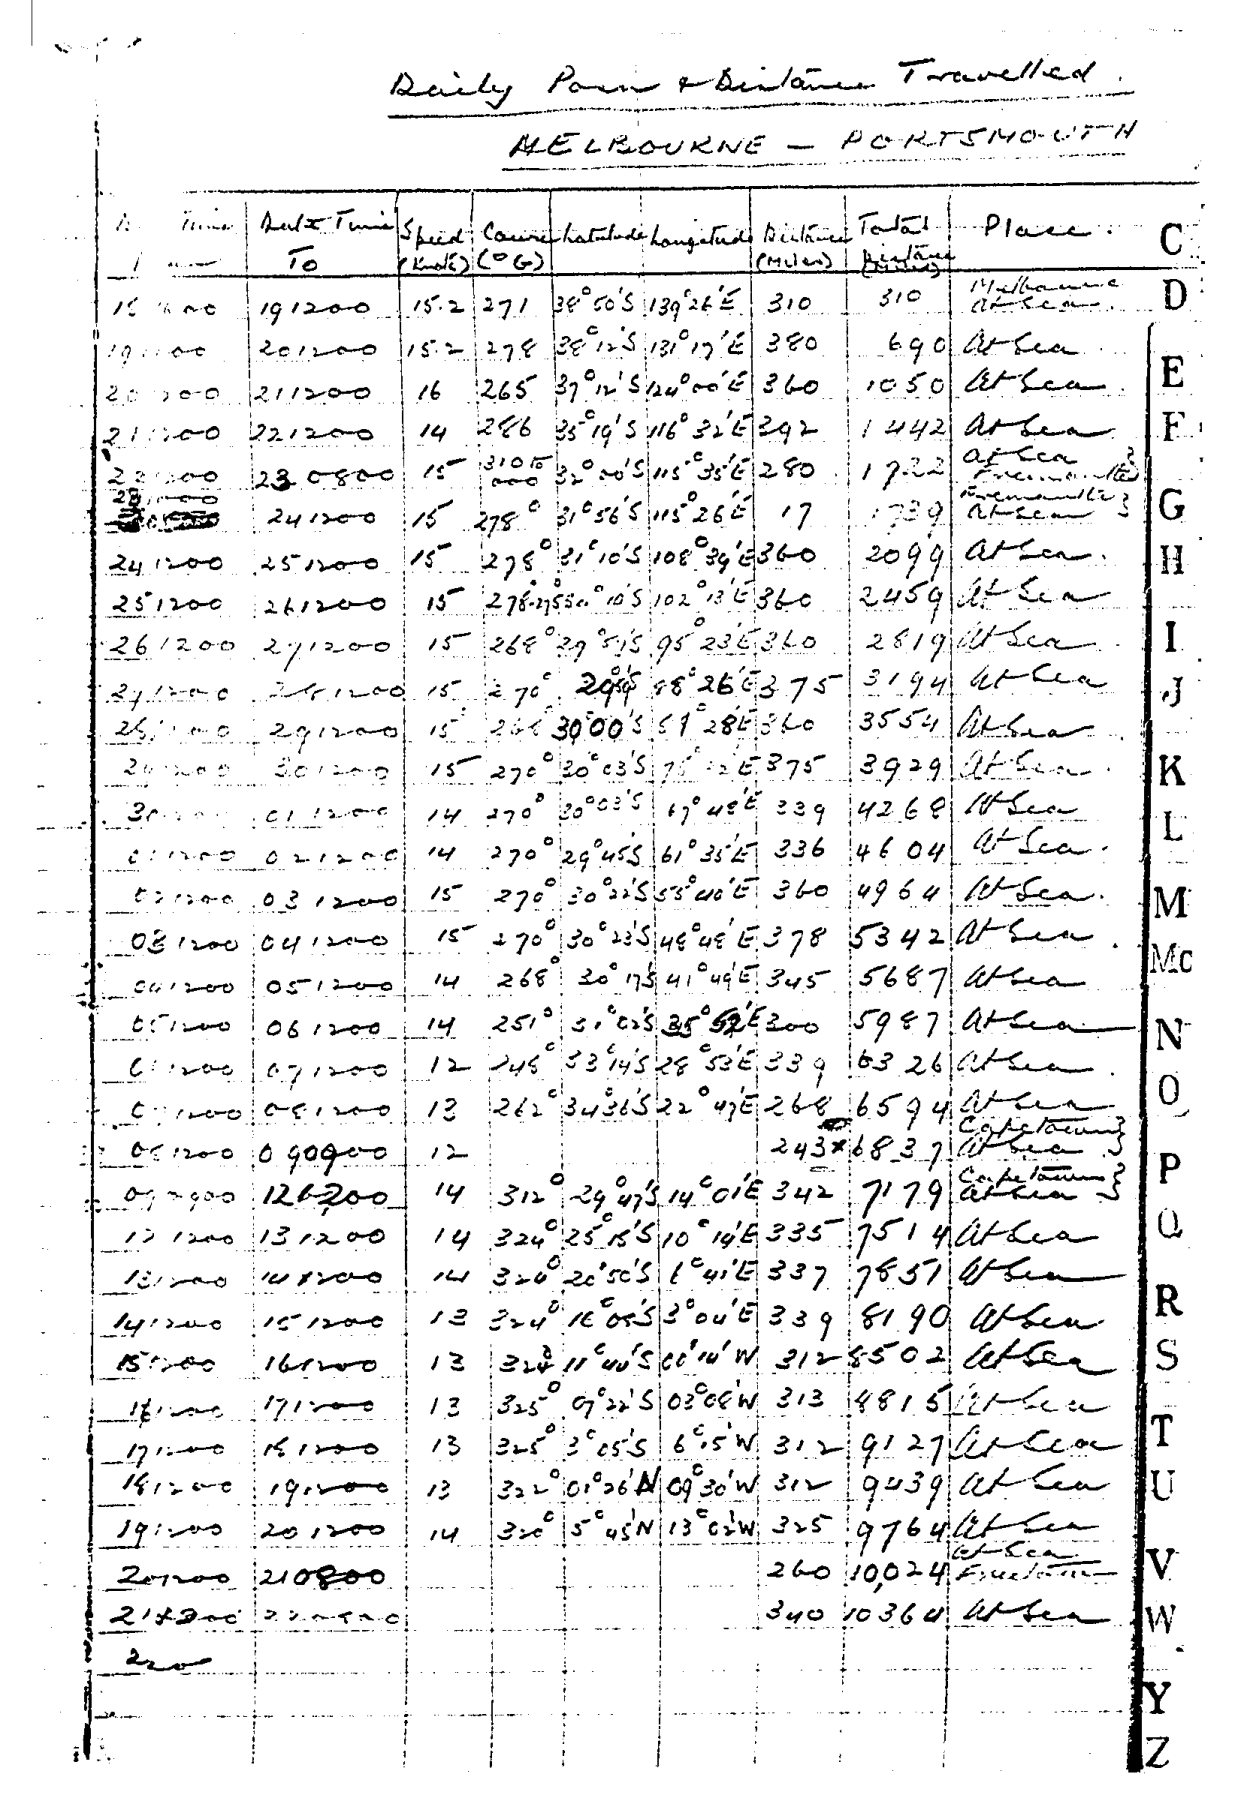 Daily Posn & Distance Travelled.
MELBOURNE — PORTSMOUTH
Date Time To Speed (Knots) Course (°G) Latitude Longitude Distance (Miles) Total Distance (Miles) Place.
C
191200 15.2 271 38°50'S 139°26'E 310 310 Melbourne At Sea.
D
191200 201200 15.2 278 38°12'S 131°17'E 380 690 At Sea
201200 211200 16 265 37°12'S 124°00'E 360 1050 At Sea
E
211200 221200 14 286 35°19'S 116°32'E 392 1442 At Sea
F
221200 230800 15 310 to 000 32°00'S 115°35'E 280 1722 At Sea Fremantle }
241200 15 278° 31°56'S 115°26'E 17 1739 Fremantle At Sea }
G
241200 251200 15 278° 31°10'S 108°39'E 360 2099 At Sea.
H
251200 261200 15 102°13'E 360 2459 At Sea
261200 271200 15 268° 29°51'S 95°23'E 360 2819 At Sea
I
271200 281200 15 270° 88°26'E 375 3194 At Sea
J
291200 15 268° 30°00'S 28'E 360 3554 At Sea
291200 301200 15 270° 30°03'S 375 3929 At Sea
K
301200 011200 14 270° 30°03'S 67°48'E 339 4268 At Sea
L
011200 021200 14 270° 29°45'S 61°35'E 336 4604 At Sea.
021200 031200 15 270° 30°22'S 55°40'E 360 4964 At Sea.
M
031200 041200 15 270° 30°23'S 48°48'E 378 5342 At Sea.
Mc
041200 051200 14 268° 30°17'S 41°49'E 345 5687 At Sea
051200 061200 14 251° 31°02'S 35°52'E 300 5987 At Sea
N
061200 071200 12 248° 33°14'S 28°53'E 339 6326 At Sea.
071200 081200 13 262° 34°36'S 22°47'E 268 6594 At Sea
O
081200 090900 12 243 x 6837 Capetown At Sea }
P
090900 121200 14 312° 29°47'S 14°01'E 342 7179 Capetown At Sea }
121200 131200 14 324° 25°15'S 10°14'E 335 7514 At Sea
Q
131200 141200 14 324° 20°50'S 6°41'E 337 7851 At Sea
141200 151200 13 324° 16°05'S 3°04'E 339 8190 At Sea
R
151200 161200 13 324 11°44'S 00°14'W 312 8502 At Sea
S
161200 171200 13 325° 07°22'S 03°08'W 313 8815 At Sea
171200 181200 13 325° 3°05'S 6°15'W 312 9127 At Sea
T
181200 191200 13 322° 01°26'N 09°30'W 312 9439 At Sea
U
191200 201200 14 320° 5°45'N 13°02'W 325 9764 At Sea
201200 210800 260 10,024 At Sea Freetown
V
340 10364 At Sea
W
Y
Z